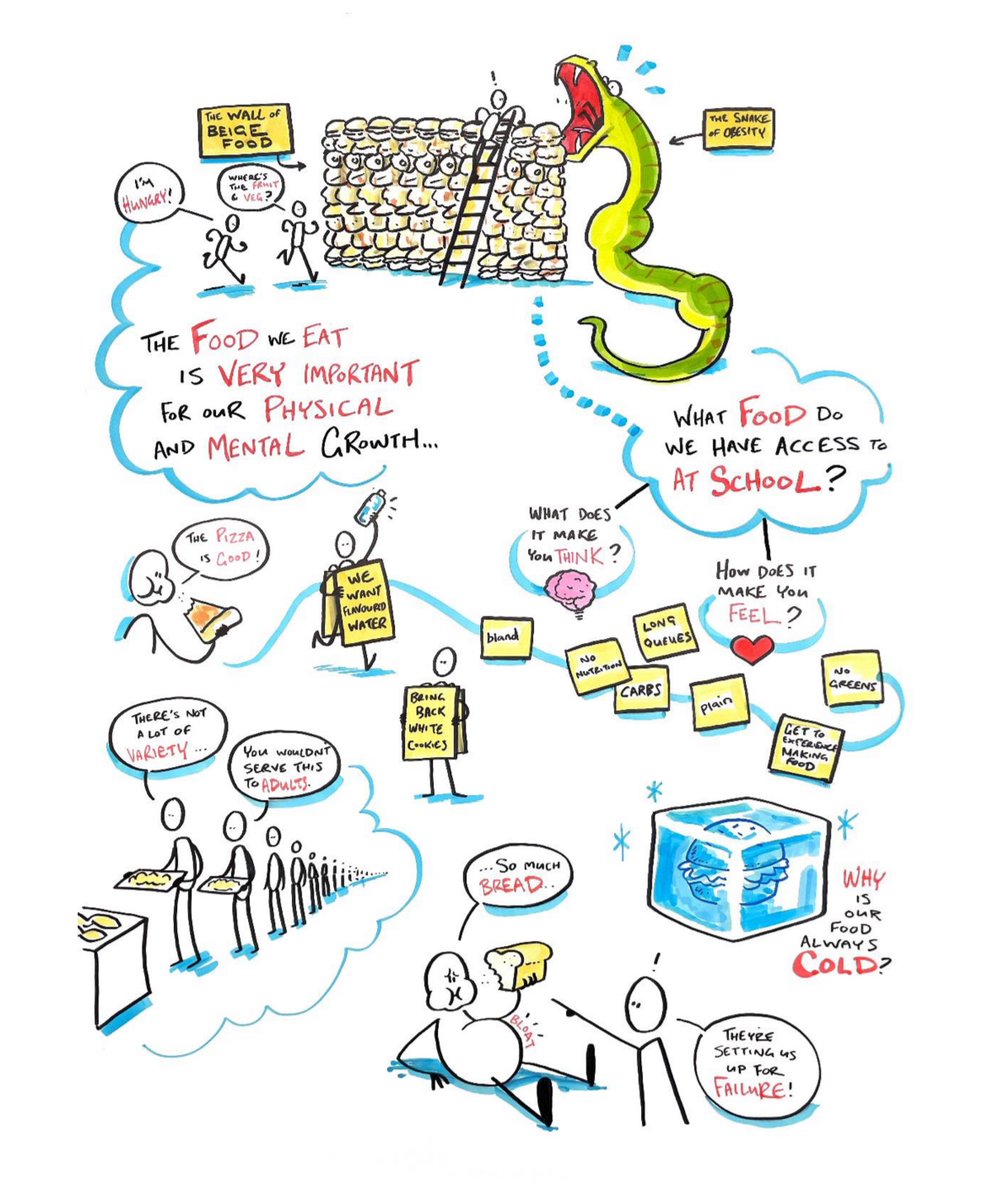 THE WALL OF
BEIGE
FOOD
THE SNAKE
OF OBESITY
I'M
HUNGRY!
WHERE'S
THE FRUIT
& VEG?
!
THE FOOD WE EAT
IS VERY IMPORTANT
FOR OUR PHYSICAL
AND MENTAL GROWTH...
WHAT FOOD DO
WE HAVE ACCESS TO
AT SCHOOL?
WHAT DOES
IT MAKE
YOU THINK?
HOW DOES IT
MAKE YOU
FEEL?
THE PIZZA
IS GOOD!
WE
WANT
FLAVOURED
WATER
BRING
BACK
WHITE
COOKIES
bland
NO
NUTRITION
LONG
QUEUES
CARBS
Plain
NO
GREENS
GET TO
EXPERIENCE
MAKING
FOOD
THERE'S NOT
A LOT OF
VARIETY...
YOU WOULDNT
SERVE THIS
TO ADULTS.
...SO MUCH
BREAD...
BLOAT
WHY
IS
OUR
FOOD
ALWAYS
COLD?
!
THEY'RE
SETTING US
UP FOR
FAILURE!